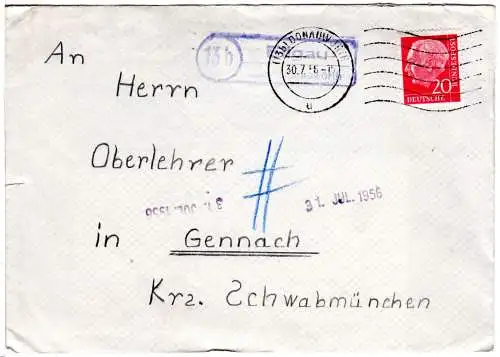 An
Herrn
Oberlehrer
31. JUL. 1956
31. JUL. 1956
in Gennach
Krz. Schwabmünchen
13b
(13b) DONAUWÖRTH
30.7.56
d
20
DEUTSCHE BUNDESPOST